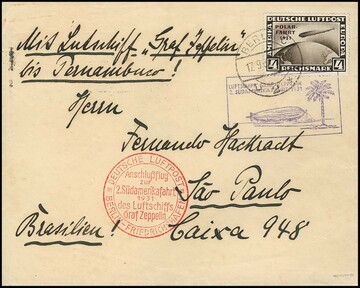 Mit Lutschiff „Graf Zeppelin"
bis Pernambuco!
DEUTSCHE LUFTPOST
POLAR-
FAHRT
1931
REICHSMARK
BERLIN
17.9.
LUFTSCHIFF GRAF ZEPPELIN
2. SÜDAMERIKAFAHRT 1931
Herrn
Fernando Hackradt
São Paulo
Caixa 948
Brasilien!
DEUTSCHE LUFTPOST
Anschlußflug
zur
2.Südamerikafahrt
1931
des Luftschiffs
Graf Zeppelin
BERLIN-FRIEDRICHSHAFEN